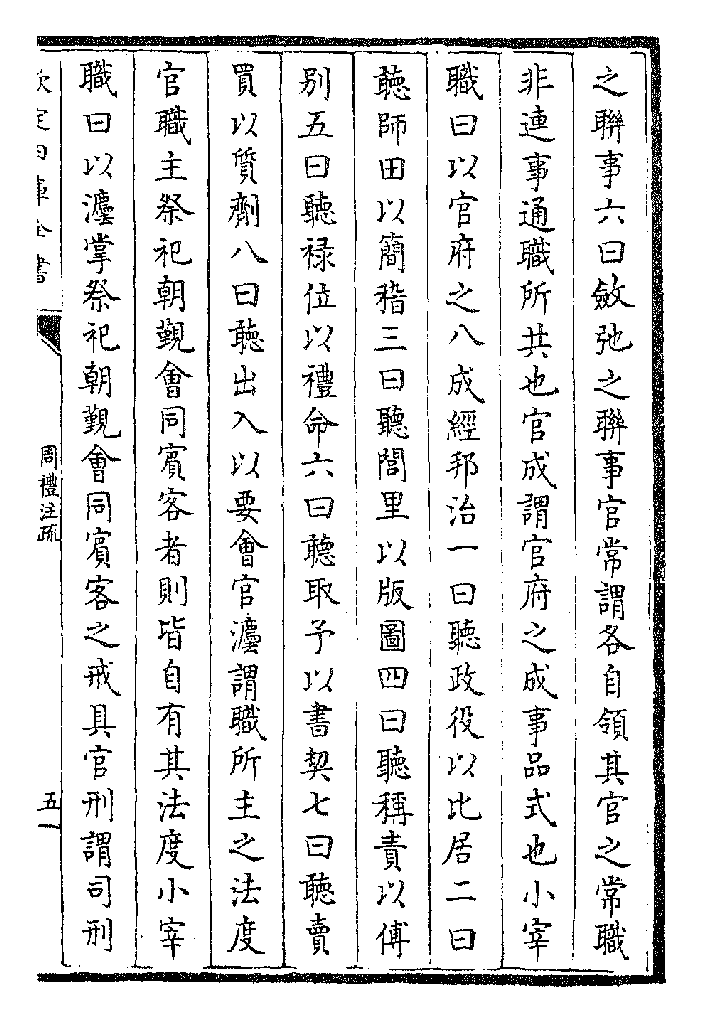 之聯事六曰斂弛之聯事官常謂各自領其官之常職
非連事通職所共也官成謂官府之成事品式也小宰
職曰以官府之八成經邦治一曰聽政役以比居二曰
聽師田以簡稽三曰聽閭里以版圖四曰聽稱責以傅
别五曰聽禄位以禮命六曰聽取予以書契七曰聽賣
買以質劑八曰聽出入以要會官灋謂職所主之法度
官職主祭祀朝覲會同賓客者則皆自有其法度小宰
職曰以灋掌祭祀朝覲會同賓客之戒具官刑謂司刑
欽定四庫全書
周禮注疏
五一